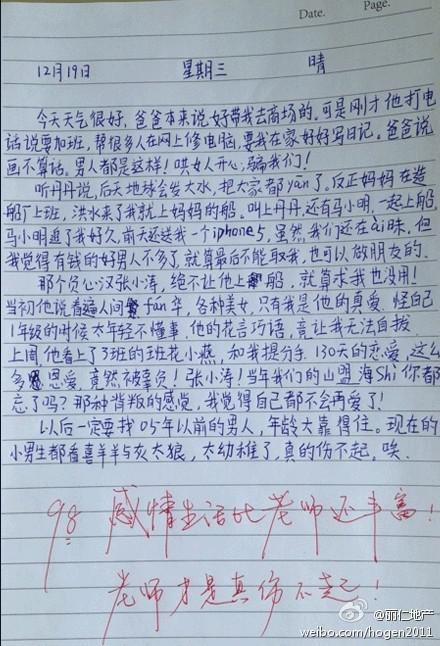 Date.        Page.
12月19日        星期三        晴
今天天气很好，爸爸本来说好带我去商场的。可是刚才他打电
话说要加班，帮很多人在网上修电脑，要我在家好好写日记。爸爸说
画不算话。男人都是这样！哄女人开心，骗我们！
听丹丹说，后天地球会发大水，把大家都yān了。反正妈妈在造
船厂上班，洪水来了我就上妈妈的船。叫上丹丹，还有马小明，一起上船。
马小明追了我好久，前天还送我一个iphone5，虽然我们还在ài昧，但
我觉得有钱的好男人不多了，就算最后不能取我，也可以做朋友的。
那个负心汉张小涛，绝不让他上船，就算求我也没用！
当初他说看遍人间fán华，各种美女，只有我是他的真爱。怪自己
1年级的时候太年轻不懂事，他的花言巧语，竟让我无法自拔
上周他看上了3班的班花小燕，和我提分手，130天的恋爱，这么
多恩爱，竟然被辜负！张小涛！当年我们的山盟海Shì你都
忘了吗？那种背叛的感觉，我觉得自己都不会再爱了！
以后一定要找05年以前的男人，年龄大靠得住。现在的
小男生都看喜羊羊与灰太狼，太幼稚了，真的伤不起，唉
98 感情生活比老师还丰富！
老师才是真伤不起！
@丽仁地产
weibo.com/hogen2011